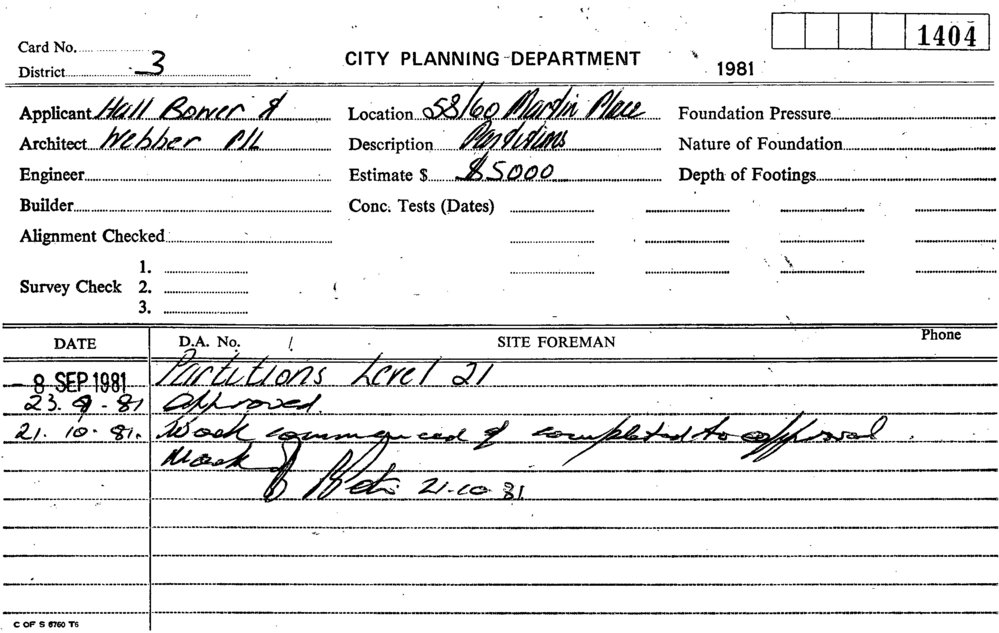 1404
Card No.
CITY PLANNING DEPARTMENT
District 3
1981
Applicant Hall Bower &
Location 58/60 Martin Place
Foundation Pressure
Architect Webber P/L
Description Partitions
Nature of Foundation
Engineer
Estimate $ $5000
Depth of Footings
Builder
Conc. Tests (Dates)
Alignment Checked
1.
Survey Check 2.
3.
DATE D.A. No. SITE FOREMAN Phone
- 8 SEP 1981 Partitions Level 21
23. 9 - 81 Approved.
21. 10 - 81. Work commenced & completed to approval.
21-10-81
C OF S 6760 T6